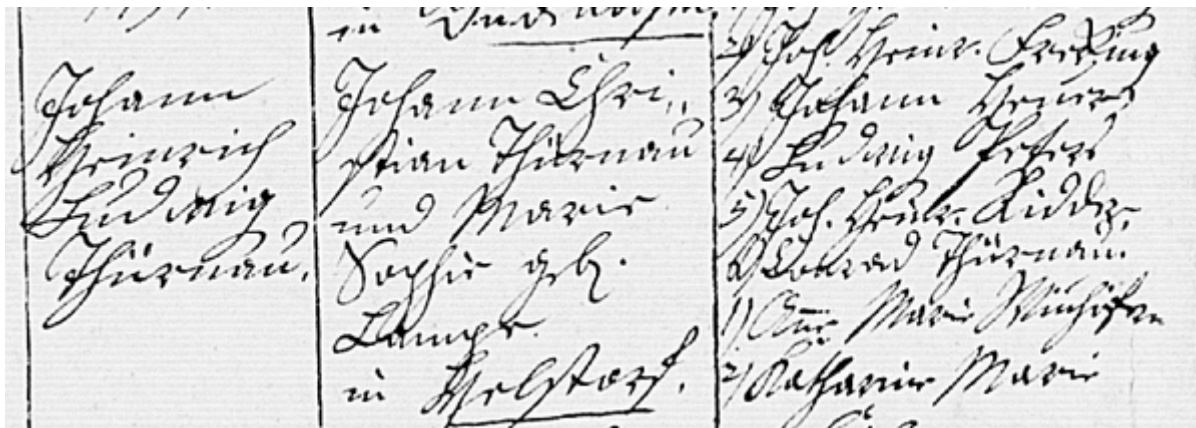 Johann
Heinrich
Ludwig
Thürnau.
in
Johann Chri„
stian Thürnau
und Marie
Sophie geb.
Lampe.
in Helstorf.
2) Joh. Heinr.
3) Johann Heinr.
4) Ludwig Peters
5) Joh. Heinr. Ridder.
6) Conrad Thürnau.
1) Anne Marie
2) Katharine Marie